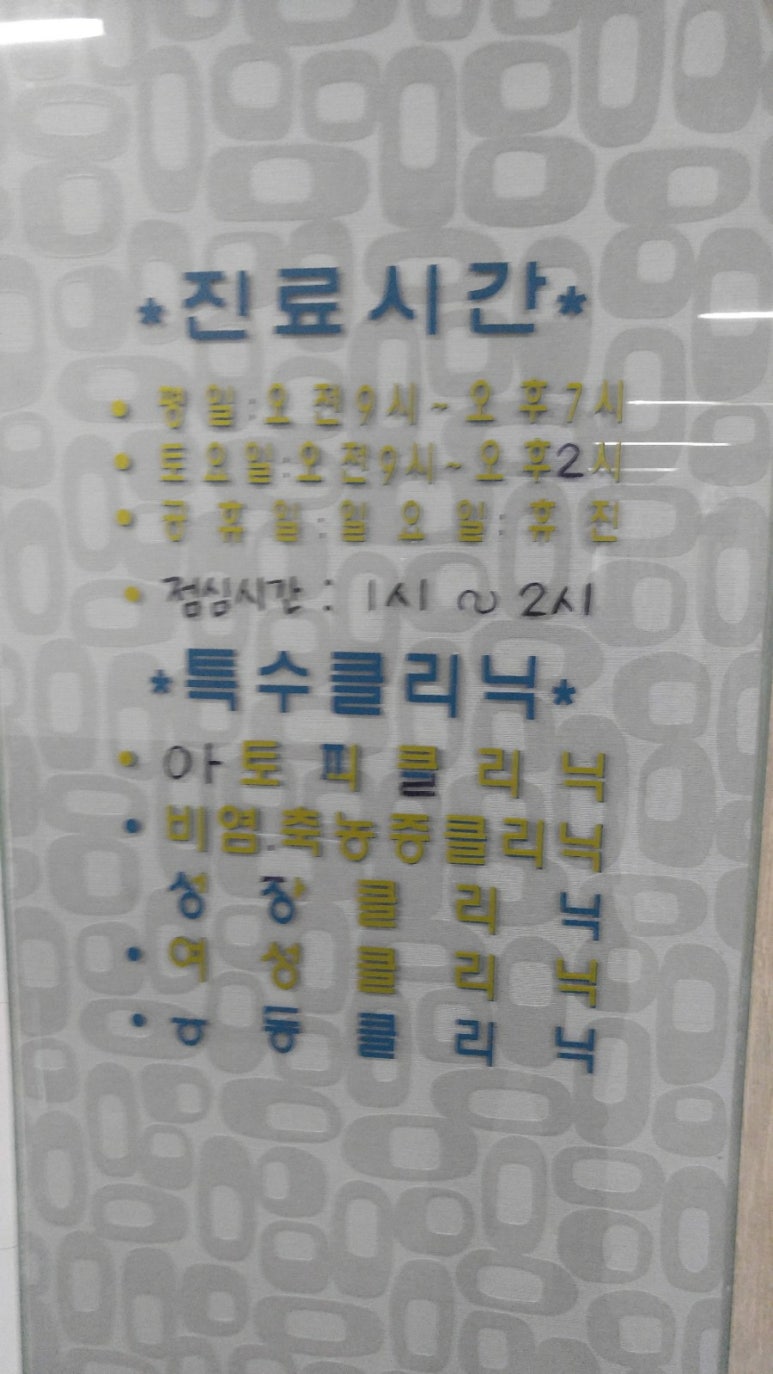 *진료시간*
• 평일:오전9시~오후7시
• 토요일:오전9시~오후2시
• 공휴일:일요일:휴진
• 점심시간 : 1시 ~ 2시
*특수클리닉*
• 아토피클리닉
• 비염.축농증클리닉
성장클리닉
• 여성클리닉
• ㅎ동클리닉